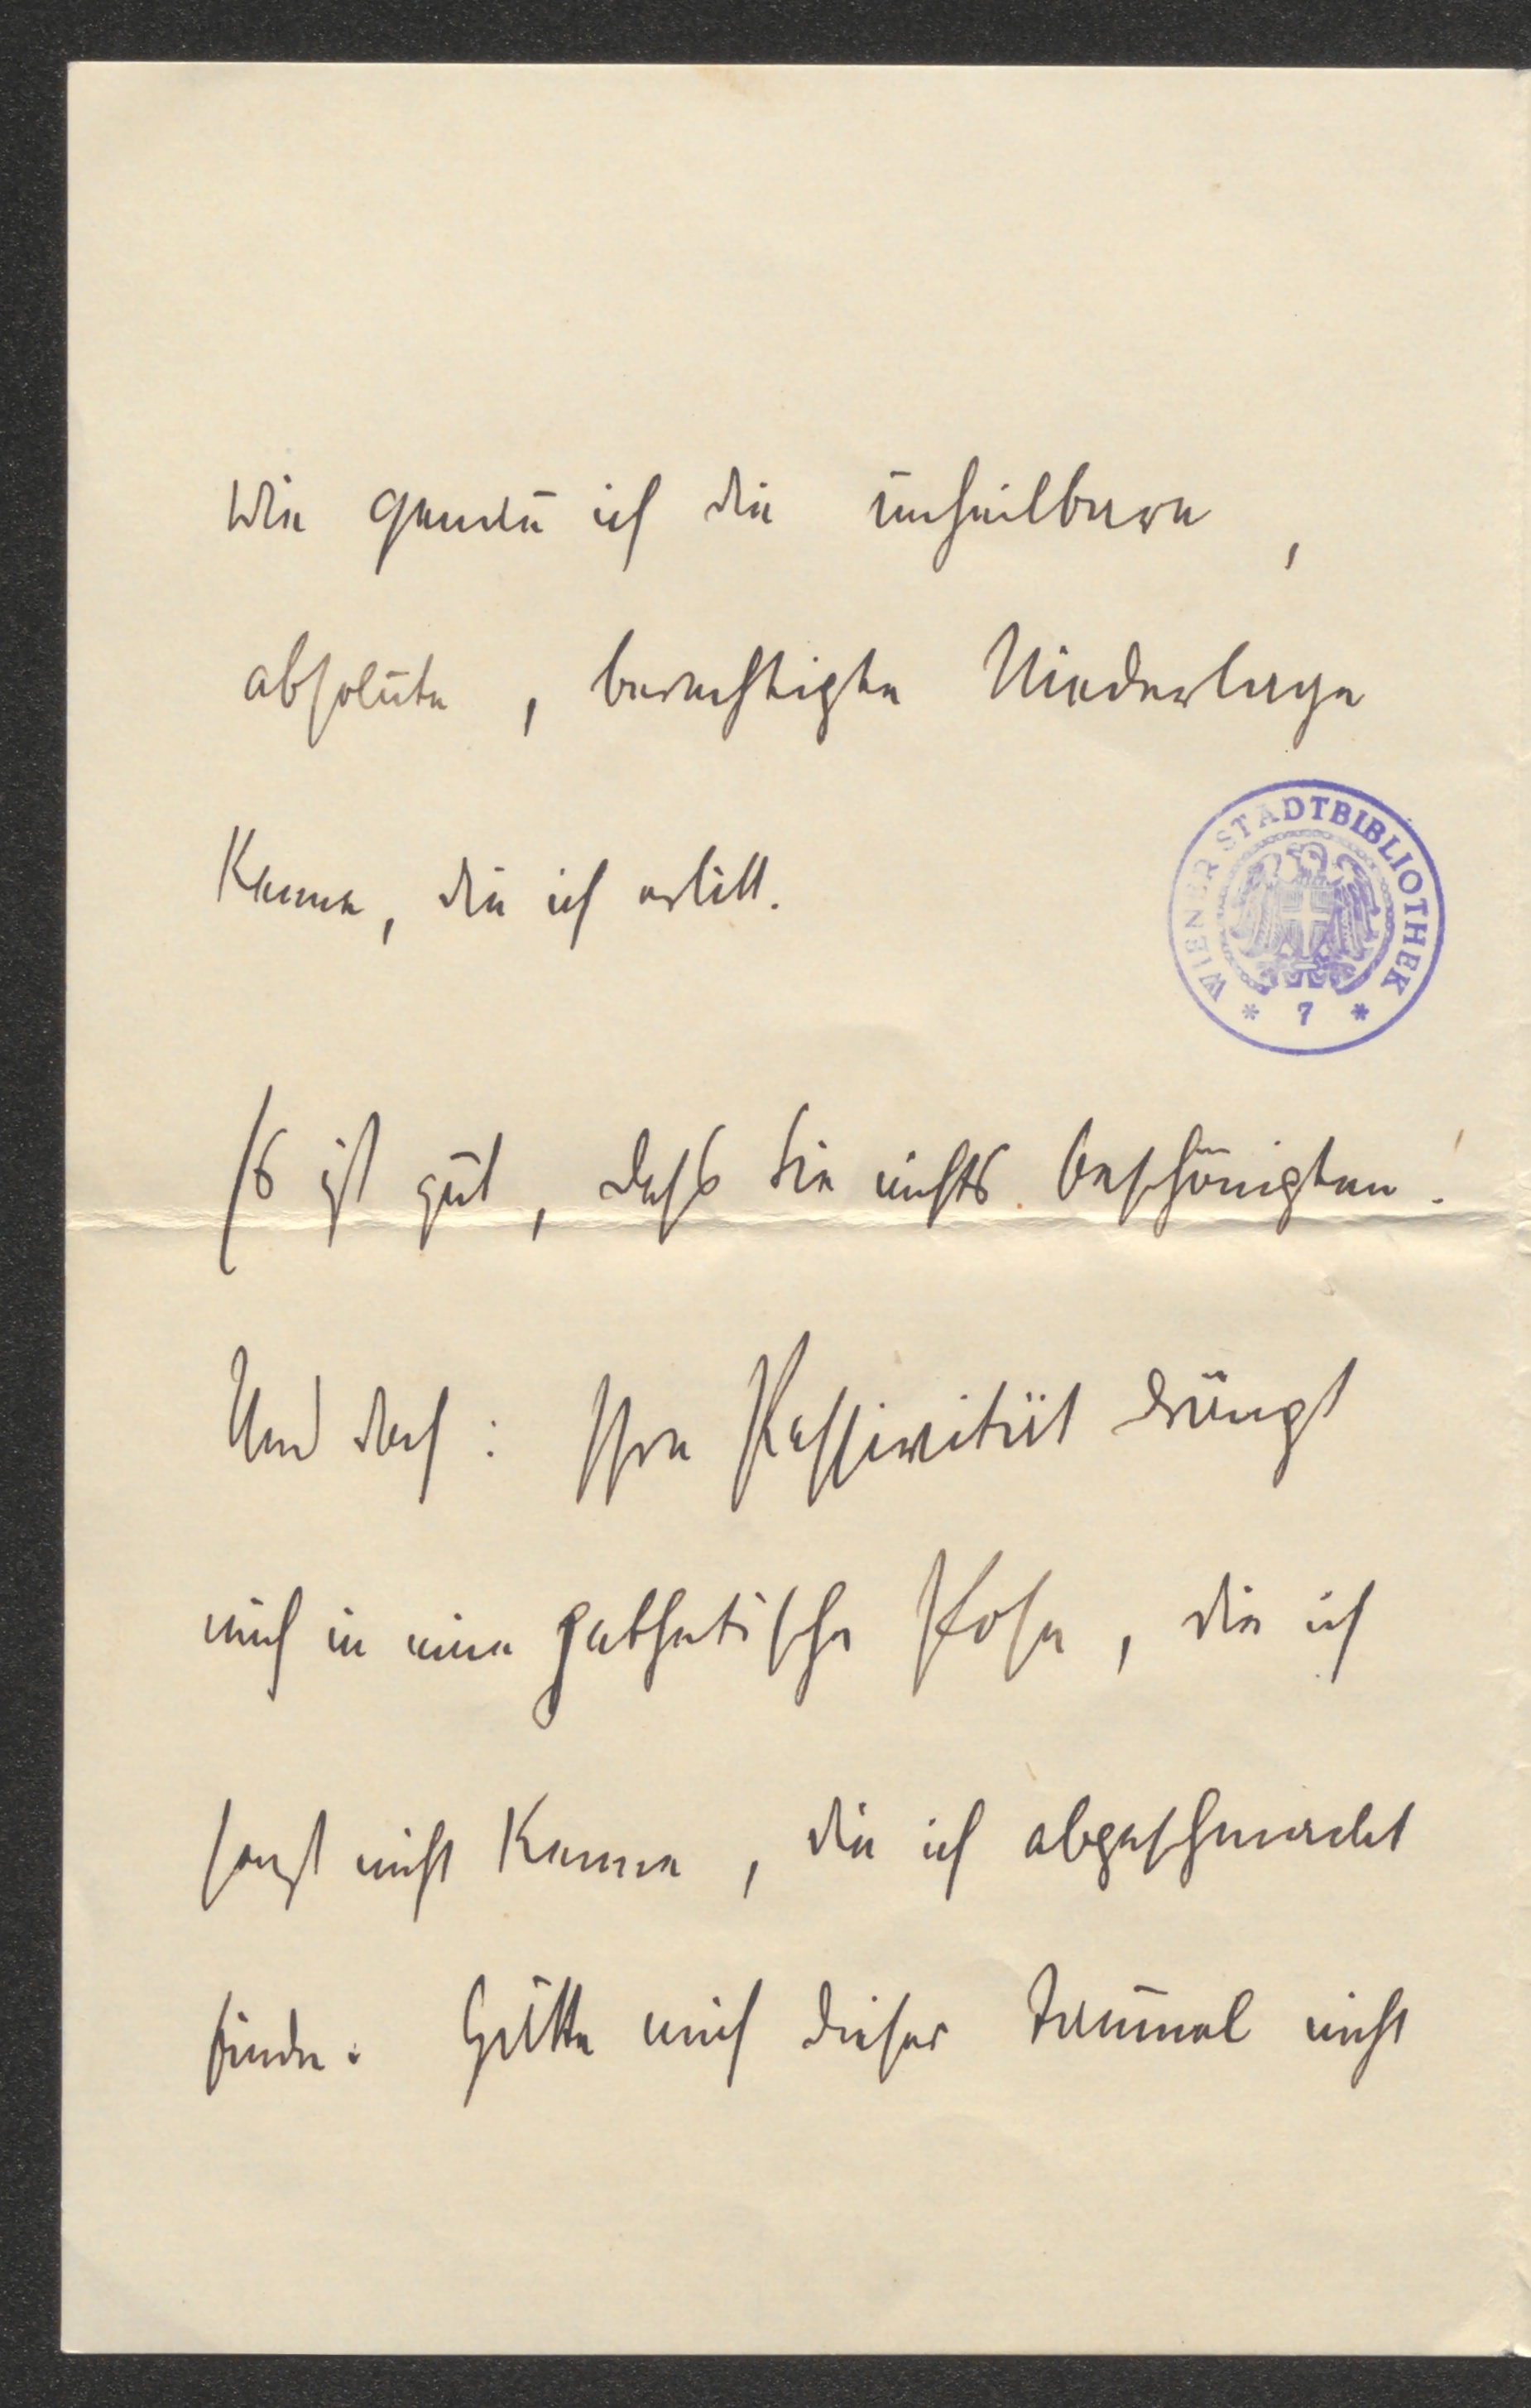 Wie genau ich die unheilbare,
absolute, berechtigte Niederlage
kenne, die ich erlitt.
WIENER STADTBIBLIOTHEK
* 7 *
Es ist gut, dass Sie nichts beschönigten.
Und doch: Ihre Passivität drängt
mich in eine pathetische Pose, die ich
sonst nicht kenne, die ich abgeschmackt
finde. Hätte mich dieser Taumel nicht